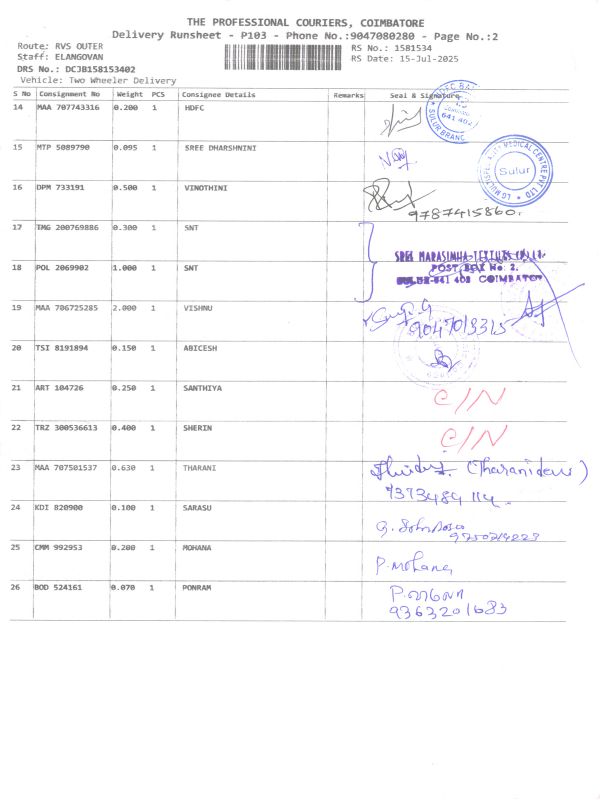 THE PROFESSIONAL COURIERS, COIMBATORE
Delivery Runsheet - P103 - Phone No.:9047080280 - Page No.:2
Route: RVS OUTER RS No.: 1581534
Staff: ELANGOVAN RS Date: 15-Jul-2025
DRS No.: DCJB158153402
Vehicle: Two Wheeler Delivery
S No Consignment No Weight PCS Consignee Details Remarks Seal & Signature
14 MAA 707743316 0.200 1 HDFC
641 402
SULUR BRANCH
15 MTP 5089790 0.095 1 SREE DHARSHNINI
MEDICAL CENTRE PVT LTD
Sulur
16 DPM 733191 0.500 1 VINOTHINI
9787415860.
17 TMG 200769886 0.300 1 SNT
SREE NARASIMHA TEXTILES (P) LTD.
POST BOX No: 2.
SULUR-641 402 COIMBATORE
18 POL 2069902 1.000 1 SNT
19 MAA 706725285 2.000 1 VISHNU
9047013315
20 TSI 8191894 0.150 1 ABICESH
21 ART 104726 0.250 1 SANTHIYA C/N
22 TRZ 300536613 0.400 1 SHERIN C/N
23 MAA 707501537 0.630 1 THARANI (Tharanidevi)
7373484114.
24 KDI 820900 0.100 1 SARASU
9750214223
25 CMM 992953 0.200 1 MOHANA P. Mohana
26 BOD 524161 0.070 1 PONRAM
9363201683